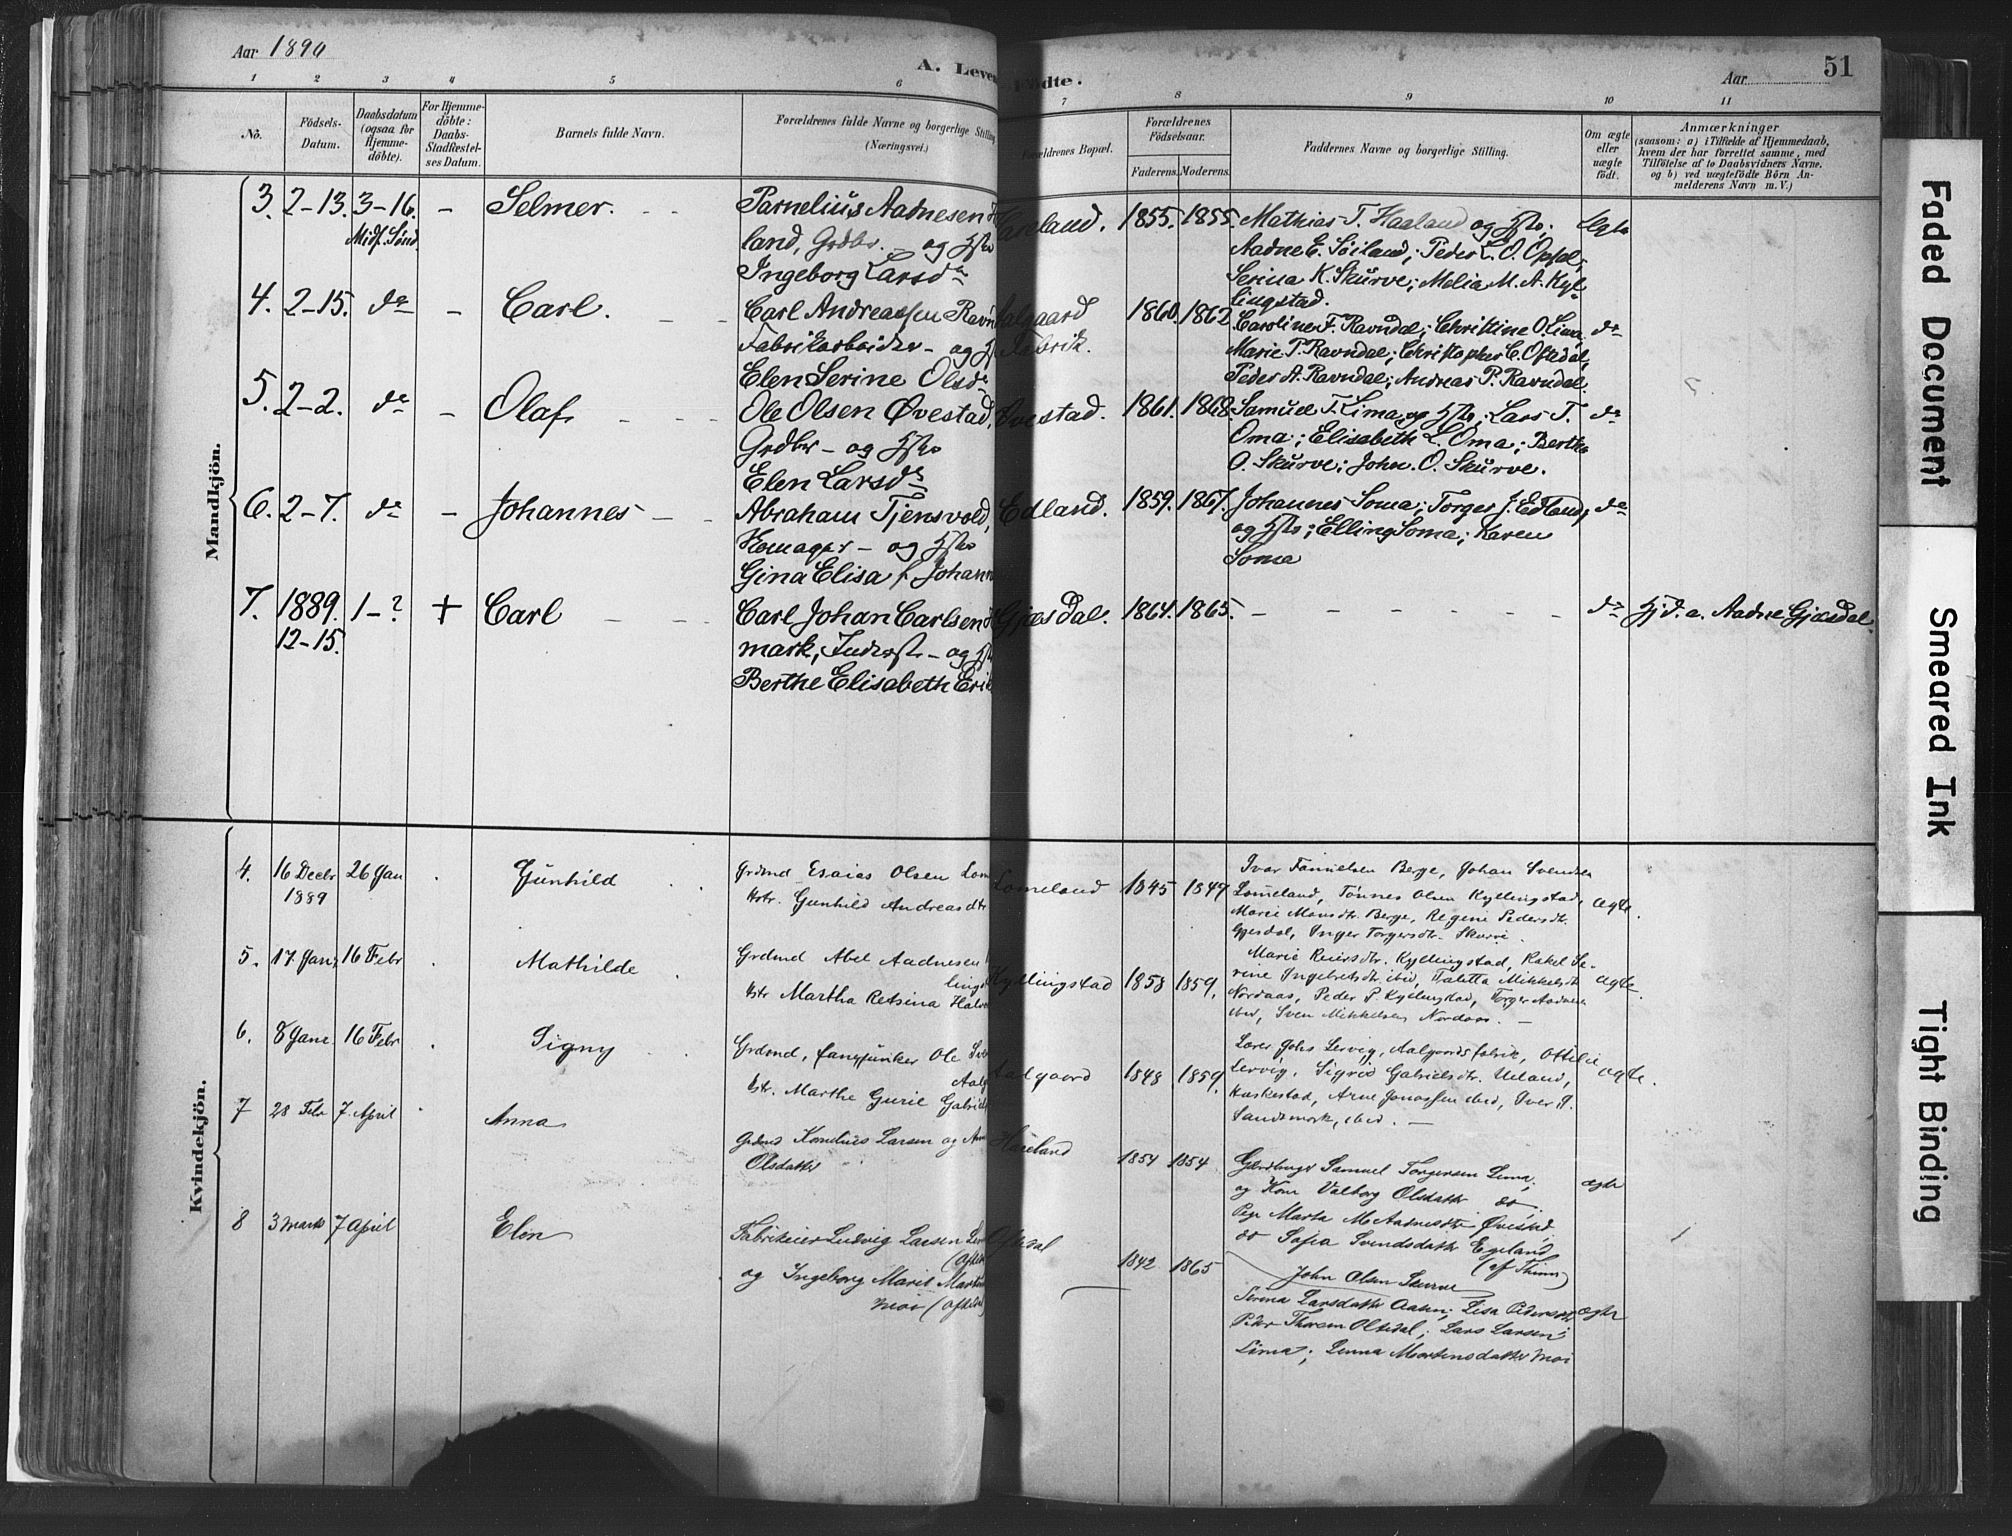 Aar 1890
A. Leven
Fødte.
Aar
51
1 2 3 4 5 6 7 8 9 10 11
No.
Fødsels-Datum.
Daabsdatum (ogsaa for Hjemme-døbte).
For Hjemme-døbte: Daabs-Stadfæstel-ses Datum.
Barnets fulde Navn.
Forældrenes fulde Navne og borgerlige Stilling
(Næringsvei.)
Forældrenes Bopæl.
Forældrenes Fødselsaar.
Faderens. Moderens.
Faddernes Navne og borgerlige Stilling.
Om ægte eller uægte født.
Anmærkninger
(saasom: a) i Tilfælde af Hjemmedaab,
hvem der har forrettet samme, med
Tilføielse af to Daabsvidners Navne,
og b) ved uægtefødte Børn An-
melderens Navn m. V.)
Mandkjön.
3. 2-13. 3-16. - Selmer. Aadnesen Haaeland. 1855. 1855. Mathias T. Haaland og Hstr; Ægte
Midf. Sønd. land, Grdbr. - og Hstr Aadne E. Søiland; Peder L. O. Opsal;
Ingeborg Larsdr Serina K. Skurve; Melia M. A. Kyl-
lingstad.
4. 2-15. do - Carl. Carl Andreassen Ravn Aalgaard 1860. 1862 Caroline F. Ravndal; Christine O. Lima, do
Fabrikarbeider - og H Fabrik. Marie T. Ravndal; Christopher C. Oftedal,
Elen Serine Olsdr Peder A. Ravndal; Andreas P. Ravndal.
5. 2-2. do - Olaf Ole Olsen Øvestad, Øvestad. 1861. 1868. Samuel T. Lima og Hstr; Lars T. do
Grdbr - og Hstr Oma; Elisabeth L. Oma; Berthe
Elen Larsdr O. Skurve; John O. Skurve.
6. 2-7. do - Johannes Abraham Tjensvold, Edland. 1859. 1867. Johannes Soma; Torger J. Edland, do
- og Hstr og Hstr; Elling Soma; Karen
Gina Elisa f. Johann Soma
7. 1889. 1-? + Carl Carl Johan Carlsen Gjæsdal. 1864. 1865. - - - - - - do Hj.d. a. Aadne Gjæsdal.
12-15. mark, Inderst - og Hstr
Berthe Elisabeth Eri
Kvindekjön.
4. 16 Decbr 26 Jan Gunhild Grdmd Esaias Olsen Lom Lomeland 1845 1847 Ivar Berge, Johan Svendsen
1889 Hstr. Gunhild Andreasdtr Lomeland, Tønnes Olsen Kyllingstad, ægte.
Marie Monsdtr. Berge, Regine Pedersdtr.
Gjesdal, Inger Torgersdtr. Skurve.
5. 17 Jan 16 Febr Mathilde Grdmd Abel Aadnesen Kyllingstad 1858 1859. Marie Reiersdtr. Kyllingstad, Rakel Se-
lings rine Ingebretsdtr ibid, Taletta Mikkelsdtr ægte
Hstr Martha Retsina Halv Nordaas, Peder P. Kyllingstad, Torger Aadnesen
ibid, Sven Mikkelsen Nordaas. -
6. 8 Janr 16 Febr Signy Grdmd, Ole Sve Aalgaard 1848 1859. Lærer Johs Lervig, Aalgaards fabrik, Ottilie
Aalg Lervig, Sigrid Gabrielsdtr. Ueland, ægte.
Hstr. Marthe Gurie Gabriels Haskestad, Arne Jonassen ibid, Iver
Sandsmark, ibid. -
7 28 Feb 7. April Anna Grdmd Kornelius Larsen og Haaeland 1854 1854 Gaardbrugr Samuel Torgersen Lima, ægte
Olsdatter og Kone Valborg Olsdatter do
Pige Marta M. Aadnesdtr Øvestad,
do Sofia Svendsdatter Egeland
John Olsen Skurve
8 3 marts 7 april Elen Fabrikeier Ludvig Larsen Oftedal 1842 1865 Serina Larsdatter Aasen; Lisa Pedersdtr, ægte
(Ofted Peder Thorsen Oltedal; Lars Larsen
og Ingeborg Marit Martins Lima; Mortensdatter Moi
Moi (Oftedal)
Faded Document
Smeared Ink
Tight Binding